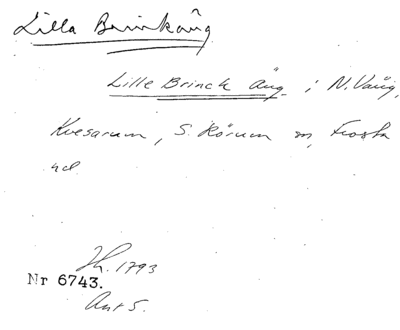 Lilla Brinkäng
Lille Brinck Äng i N. Väng,
Kvesarum, S. Rörum sn, Frosta
hd
Nr 6743.
Akt 5.